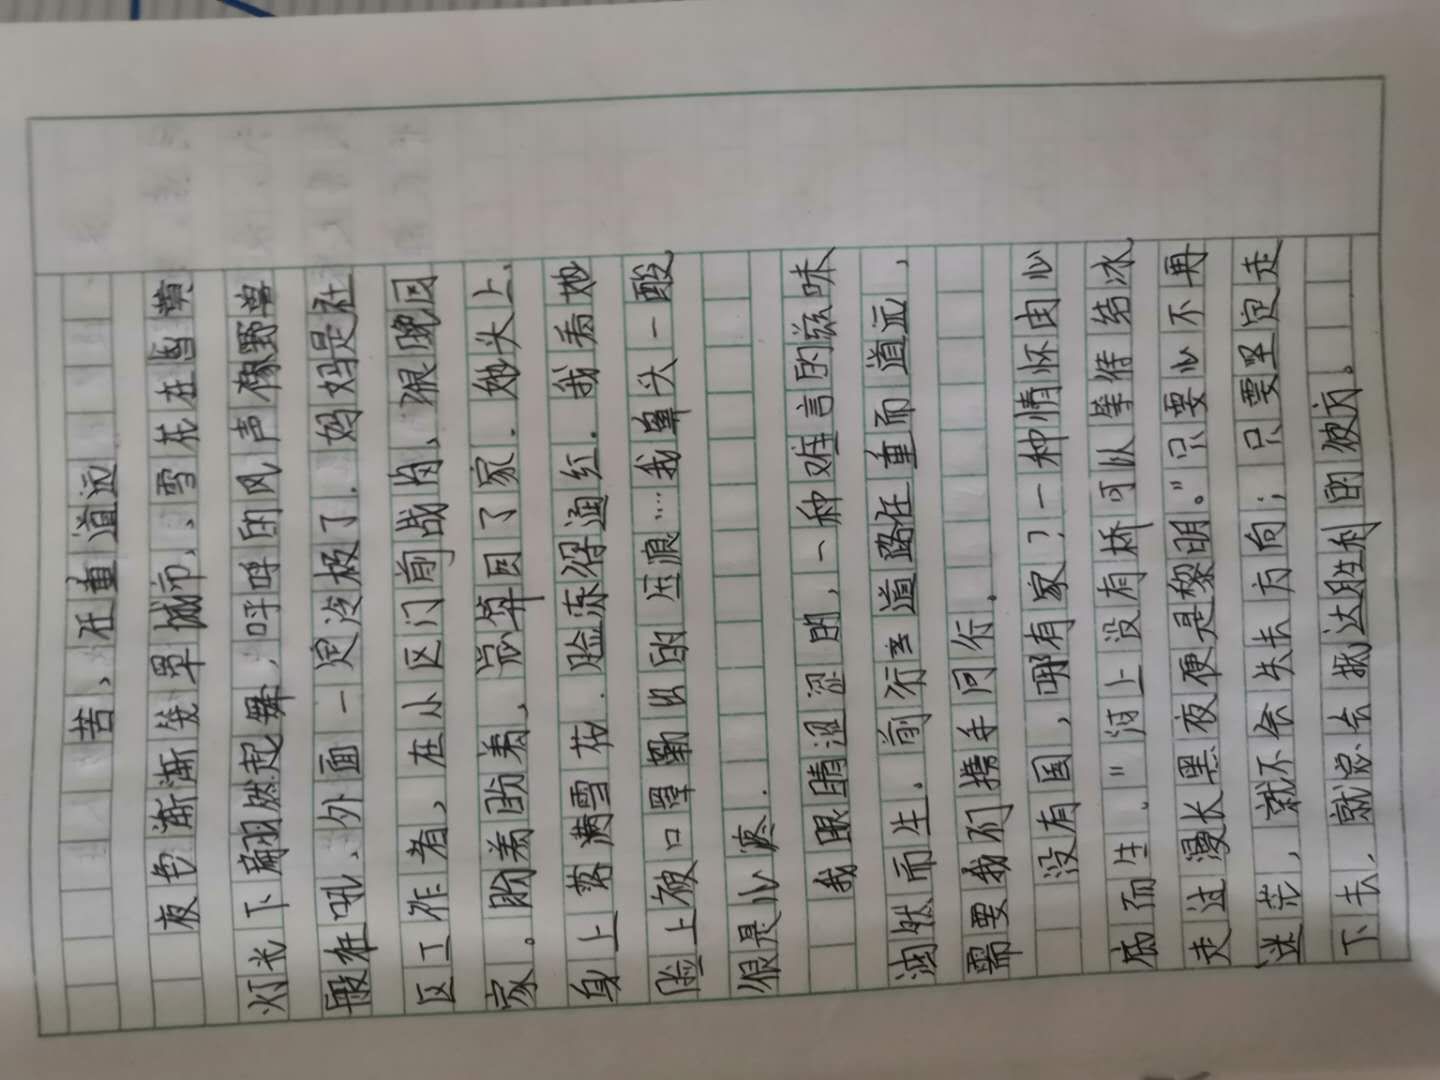 苦、任重道远
夜色渐渐笼罩城市、雪花在昏黄
灯光下翩然起舞，呼呼的风声像野兽
般在吼、外面一定冷极了．妈妈是社
区工作者、在小区门前战肉、很晚回
家。盼着盼着、总算回了家．她头上、
身上落满雪花．脸冻得通红．我看她
脸上被口罩勒出的压痕…我鼻头一酸
很是心疼．
我眼睛湿涩的，一种难言的滋味
油然而生．前行至道路任重而道远，
需要我们携手同行．
没有国，哪有家？一种情怀由心
底而生．"河上没有桥可以等待结冰
走过漫长黑夜便是黎明。"只要心不再
迷茫，就不会失去方向；只要坚定走
下去，就总会抵达胜利的彼岸。